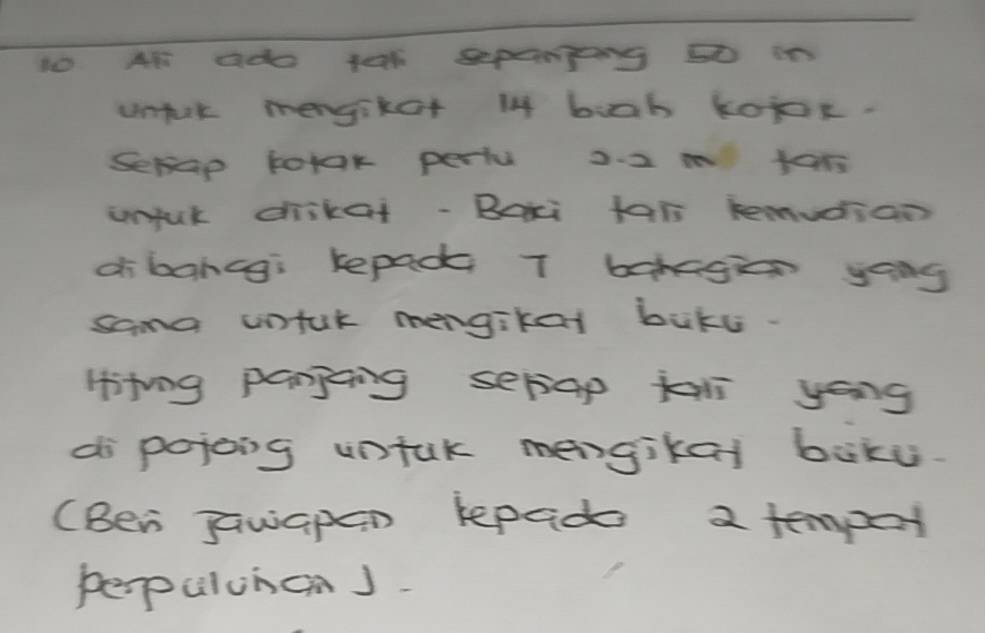 10 Ali ada tali sepanjang 50 m
untuk mengikat 14 buah kotak.
Setiap kotak perlu 2.2 m tali
untuk diikat. Baki tali kemudian
dibahagi kepada 7 bahagian yang
sama untuk mengikat buku.
Hitung panjang setiap tali yang
di potong untuk mengikat buku.
(Beri jawapan kepada 2 tempat
perpuluhan).